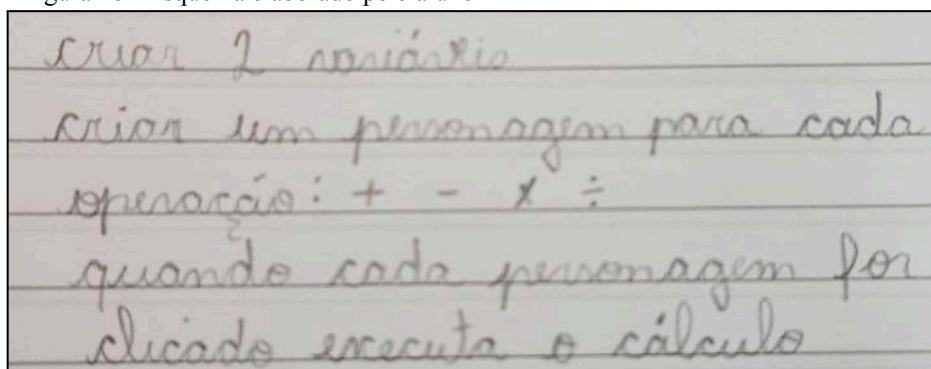 criar 2 variáveis
criar um personagem para cada
operação: + - x ÷
quando cada personagem for
clicado executa o cálculo